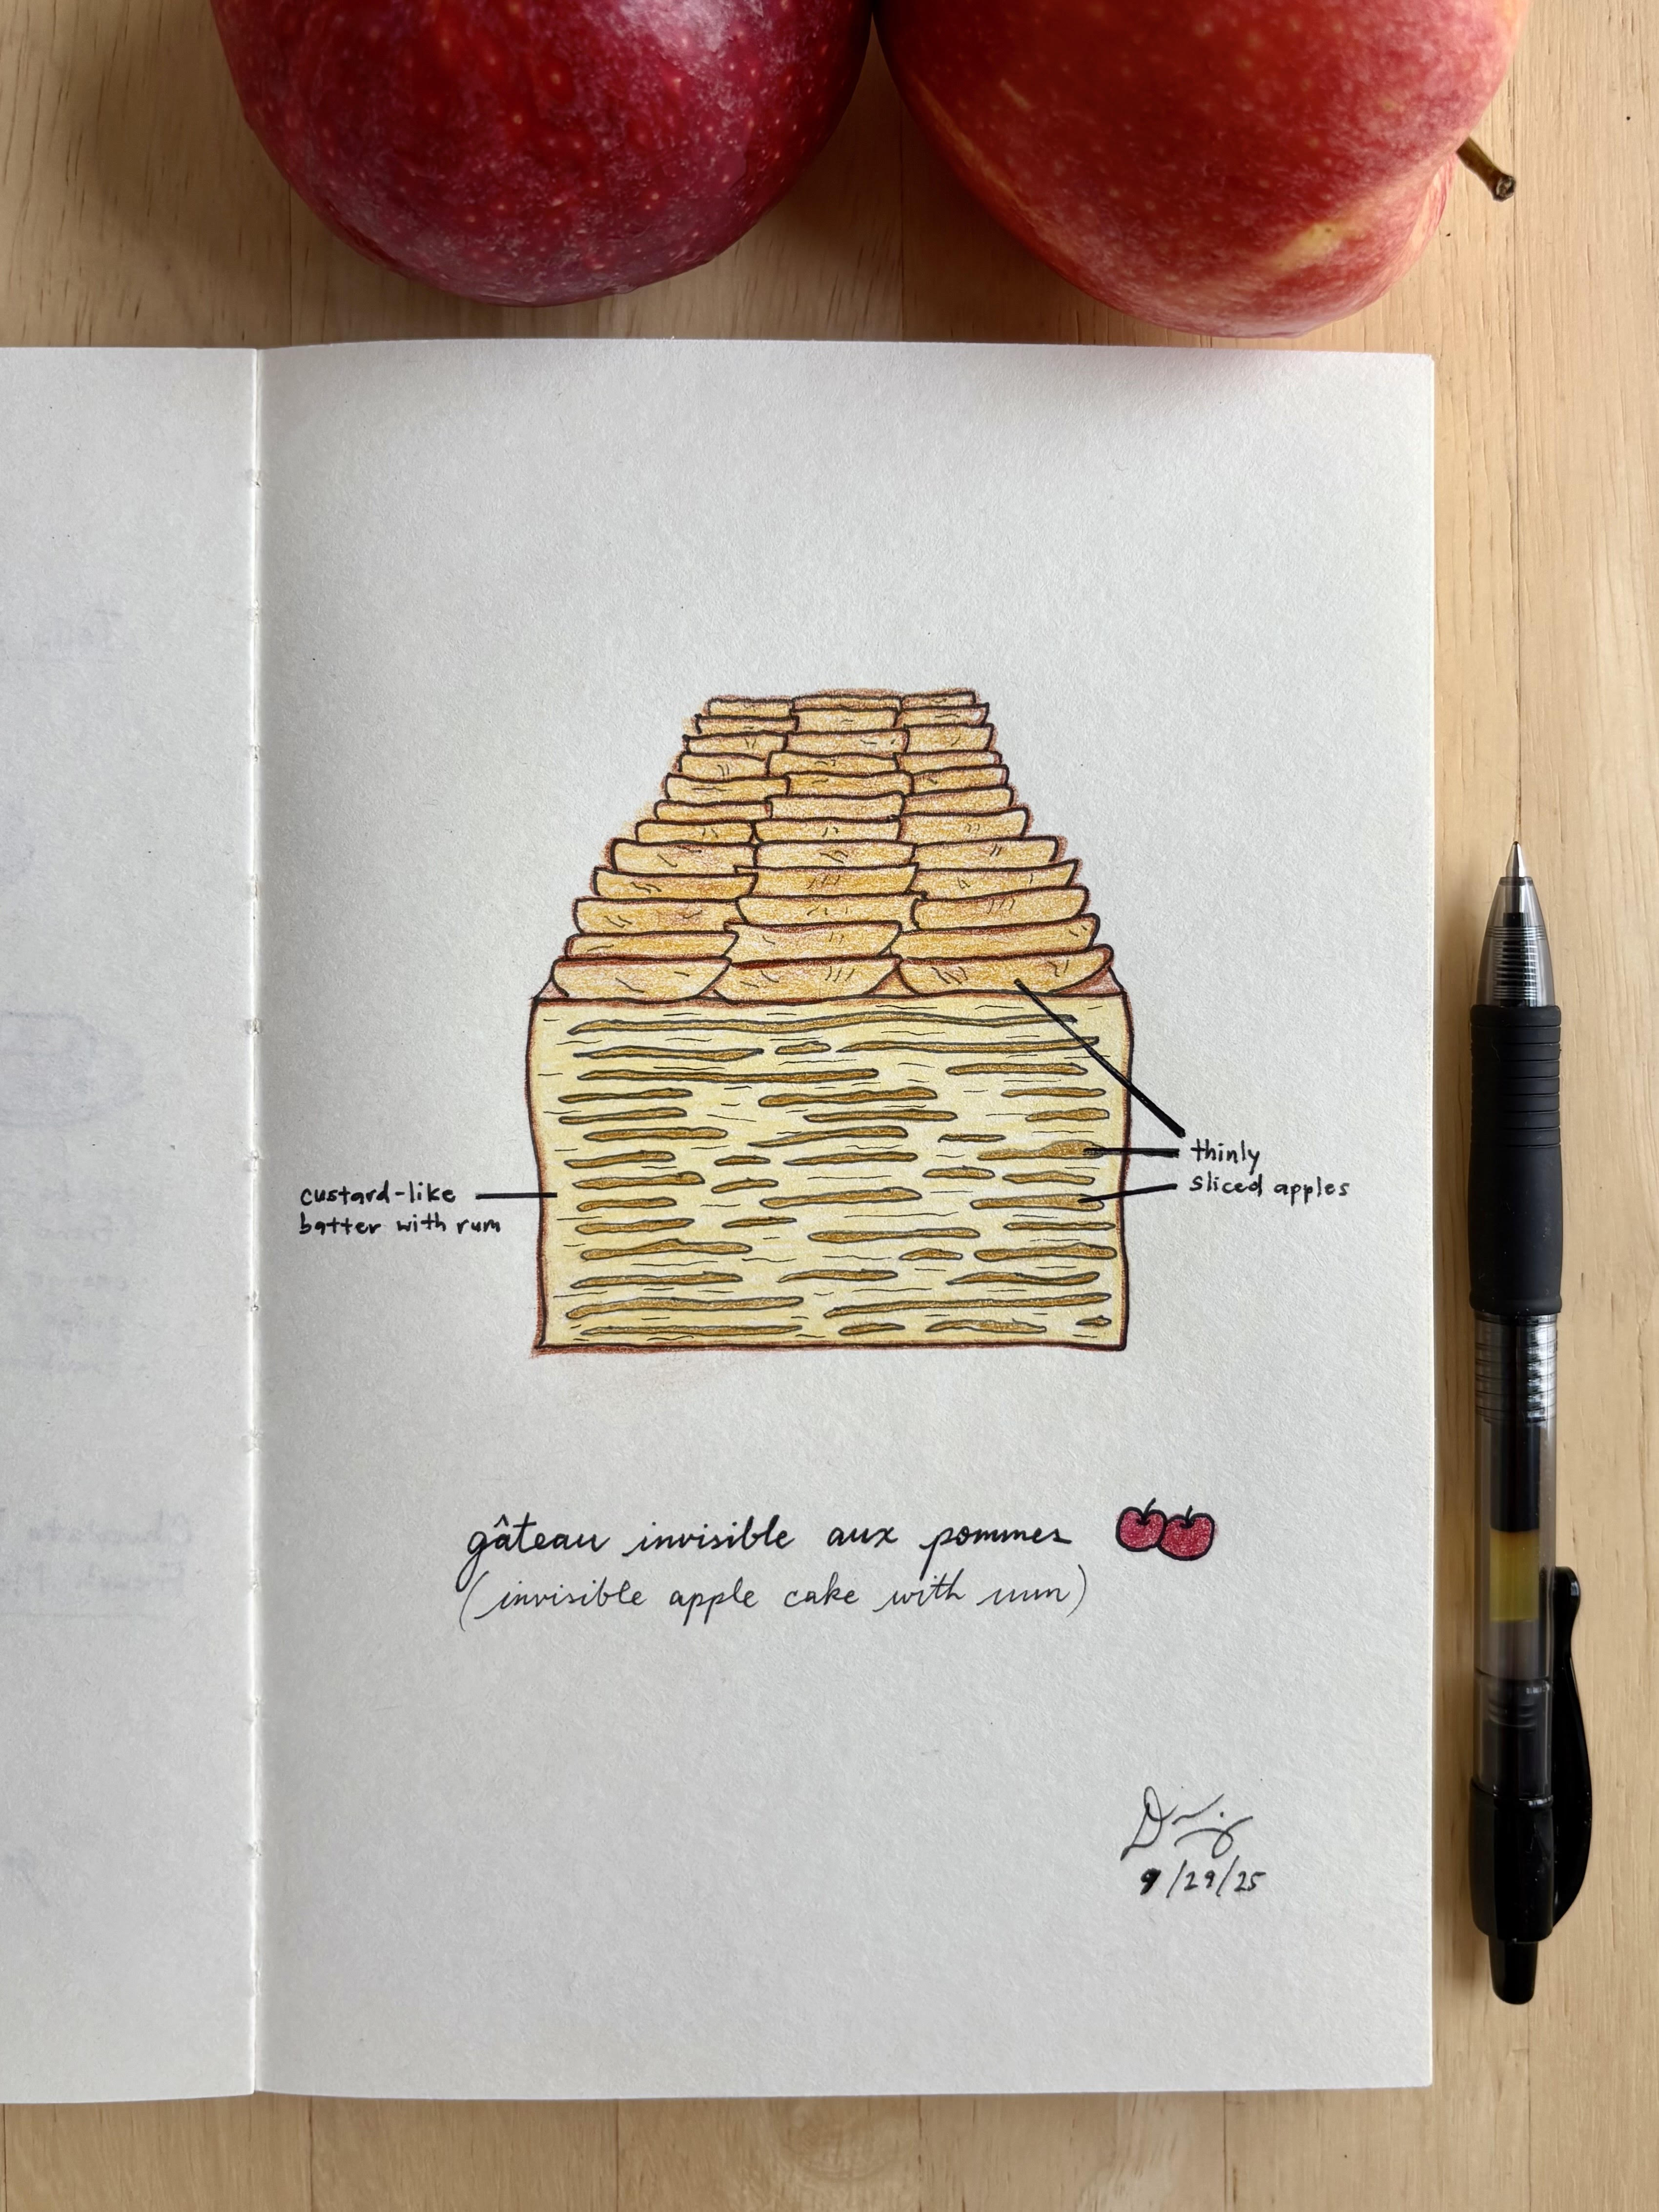 custard-like
batter with rum
thinly
sliced apples
gâteau invisible aux pommes
(invisible apple cake with rum)
9/29/25